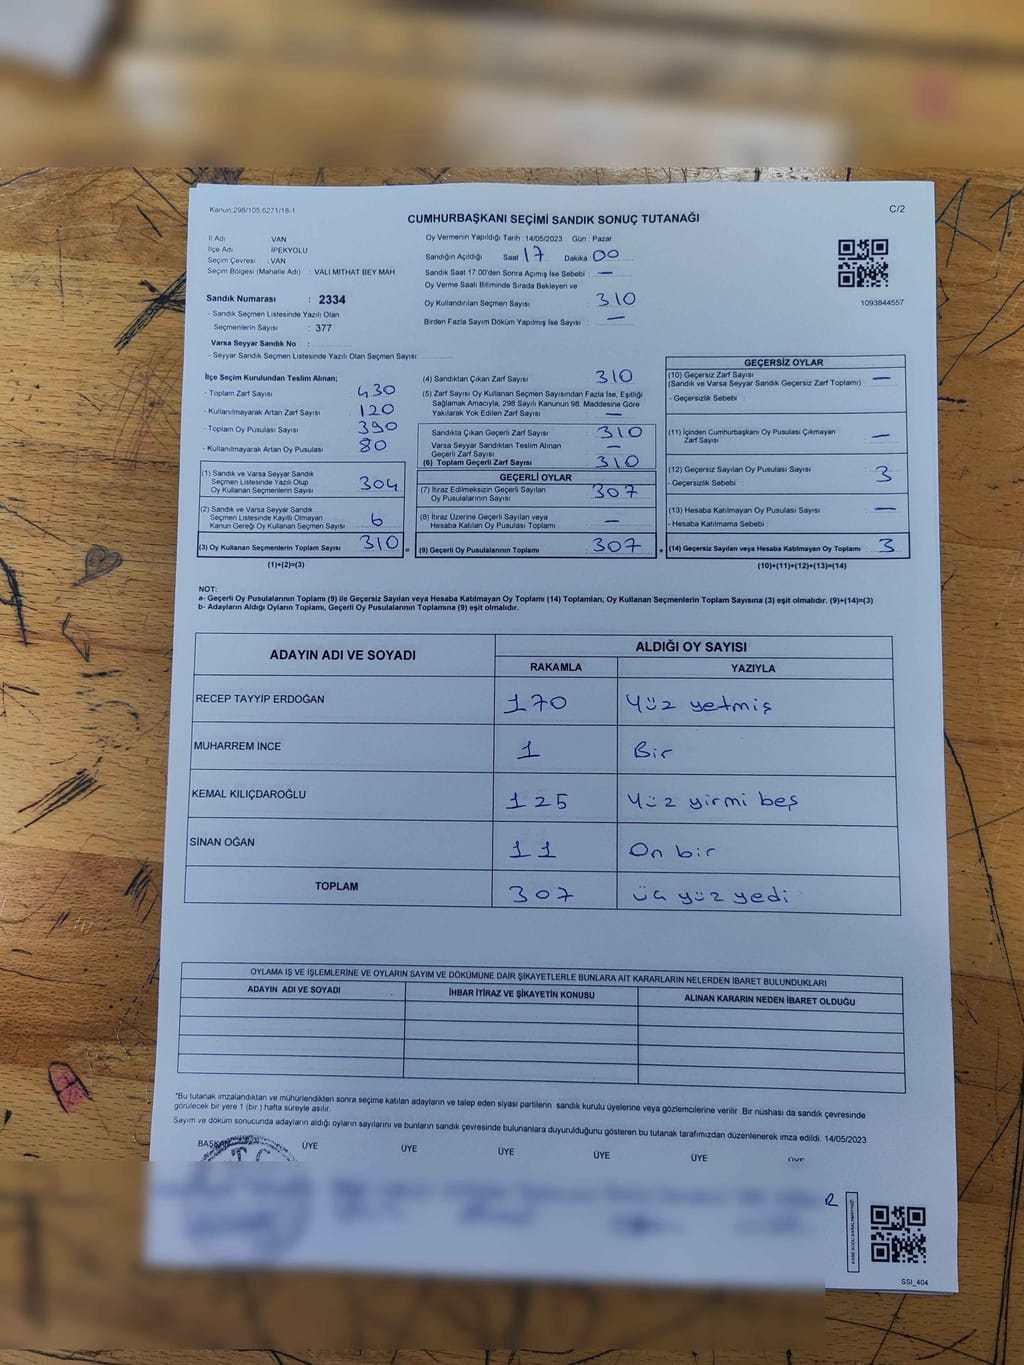 Kanun:298/105,6271/18-1
C/2
CUMHURBAŞKANI SEÇİMİ SANDIK SONUÇ TUTANAĞI
İl Adı VAN
İlçe Adı İPEKYOLU
Seçim Çevresi : VAN
Seçim Bölgesi (Mahalle Adı) : VALI MITHAT BEY MAH.
Sandık Numarası : 2334
- Sandık Seçmen Listesinde Yazılı Olan
Seçmenlerin Sayısı : 377
Varsa Seyyar Sandık No :
- Seyyar Sandık Seçmen Listesinde Yazılı Olan Seçmen Sayısı:
Oy Vermenin Yapıldığı Tarih : 14/05/2023 Gün : Pazar
Sandığın Açıldığı Saat 17 Dakika 00
Sandık Saat 17.00'den Sonra Açımış İse Sebebi : —
Oy Verme Saati Bitiminde Sırada Bekleyen ve
Oy Kullandırılan Seçmen Sayısı : 310
Birden Fazla Sayım Döküm Yapılmış İse Sayısı : —
1093844557
İlçe Seçim Kurulundan Teslim Alınan;
- Toplam Zarf Sayısı : 430
- Kullanılmayarak Artan Zarf Sayısı : 120
- Toplam Oy Pusulası Sayısı : 390
- Kullanılmayarak Artan Oy Pusulası : 80
(1) Sandık ve Varsa Seyyar Sandık
Seçmen Listesinde Yazılı Olup
Oy Kullanan Seçmenlerin Sayısı : 304
(2) Sandık ve Varsa Seyyar Sandık
Seçmen Listesinde Kayıtlı Olmayan
Kanun Gereği Oy Kullanan Seçmen Sayısı : 6
(3) Oy Kullanan Seçmenlerin Toplam Sayısı : 310 =
(1)+(2)=(3)
(4) Sandıktan Çıkan Zarf Sayısı : 310
(5) Zarf Sayısı Oy Kullanan Seçmen Sayısından Fazla İse, Eşitliği
Sağlamak Amacıyla, 298 Sayılı Kanunun 98. Maddesine Göre
Yakılarak Yok Edilen Zarf Sayısı : —
Sandıkta Çıkan Geçerli Zarf Sayısı : 310
Varsa Seyyar Sandıktan Teslim Alınan
Geçerli Zarf Sayısı : —
(6) Toplam Geçerli Zarf Sayısı : 310
GEÇERLİ OYLAR
(7) İtiraz Edilmeksizin Geçerli Sayılan
Oy Pusulalarının Sayısı : 307
(8) İtiraz Üzerine Geçerli Sayılan veya
Hesaba Katılan Oy Pusulası Toplamı : —
(9) Geçerli Oy Pusulalarının Toplamı : 307 +
GEÇERSİZ OYLAR
(10) Geçersiz Zarf Sayısı
(Sandık ve Varsa Seyyar Sandık Geçersiz Zarf Toplamı) : —
- Geçersizlik Sebebi :
(11) İçinden Cumhurbaşkanı Oy Pusulası Çıkmayan
Zarf Sayısı : —
(12) Geçersiz Sayılan Oy Pusulası Sayısı : 3
- Geçersizlik Sebebi :
(13) Hesaba Katılmayan Oy Pusulası Sayısı : —
- Hesaba Katılmama Sebebi :
(14) Geçersiz Sayılan veya Hesaba Katılmayan Oy Toplamı : 3
(10)+(11)+(12)+(13)=(14)
NOT:
a- Geçerli Oy Pusulalarının Toplamı (9) ile Geçersiz Sayılan veya Hesaba Katılmayan Oy Toplamı (14) Toplamları, Oy Kullanan Seçmenlerin Toplam Sayısına (3) eşit olmalıdır. (9)+(14)=(3)
b- Adayların Aldığı Oyların Toplamı, Geçerli Oy Pusulalarının Toplamına (9) eşit olmalıdır.
ADAYIN ADI VE SOYADI ALDIĞI OY SAYISI
RAKAMLA YAZIYLA
RECEP TAYYİP ERDOĞAN 170 Yüz yetmiş
MUHARREM İNCE 1 Bir
KEMAL KILIÇDAROĞLU 125 Yüz yirmi beş
SİNAN OĞAN 11 On bir
TOPLAM 307 üç yüz yedi
OYLAMA İŞ VE İŞLEMLERİNE VE OYLARIN SAYIM VE DÖKÜMÜNE DAİR ŞİKAYETLERLE BUNLARA AİT KARARLARIN NELERDEN İBARET BULUNDUKLARI
ADAYIN ADI VE SOYADI İHBAR İTİRAZ VE ŞİKAYETİN KONUSU ALINAN KARARIN NEDEN İBARET OLDUĞU
*Bu tutanak imzalandıktan ve mühürlendikten sonra seçime katılan adayların ve talep eden siyasi partilerin sandık kurulu üyelerine veya gözlemcilerine verilir .Bir nüshası da sandık çevresinde
görülecek bir yere 1 (bir ) hafta süreyle asılır.
Sayım ve döküm sonucunda adayların aldığı oyların sayılarını ve bunların sandık çevresinde bulunanlara duyurulduğunu gösteren bu tutanak tarafımızdan düzenlenerek imza edildi. 14/05/2023
BAŞKAN ÜYE ÜYE ÜYE ÜYE ÜYE ÜYE
T.C.
SSI_404